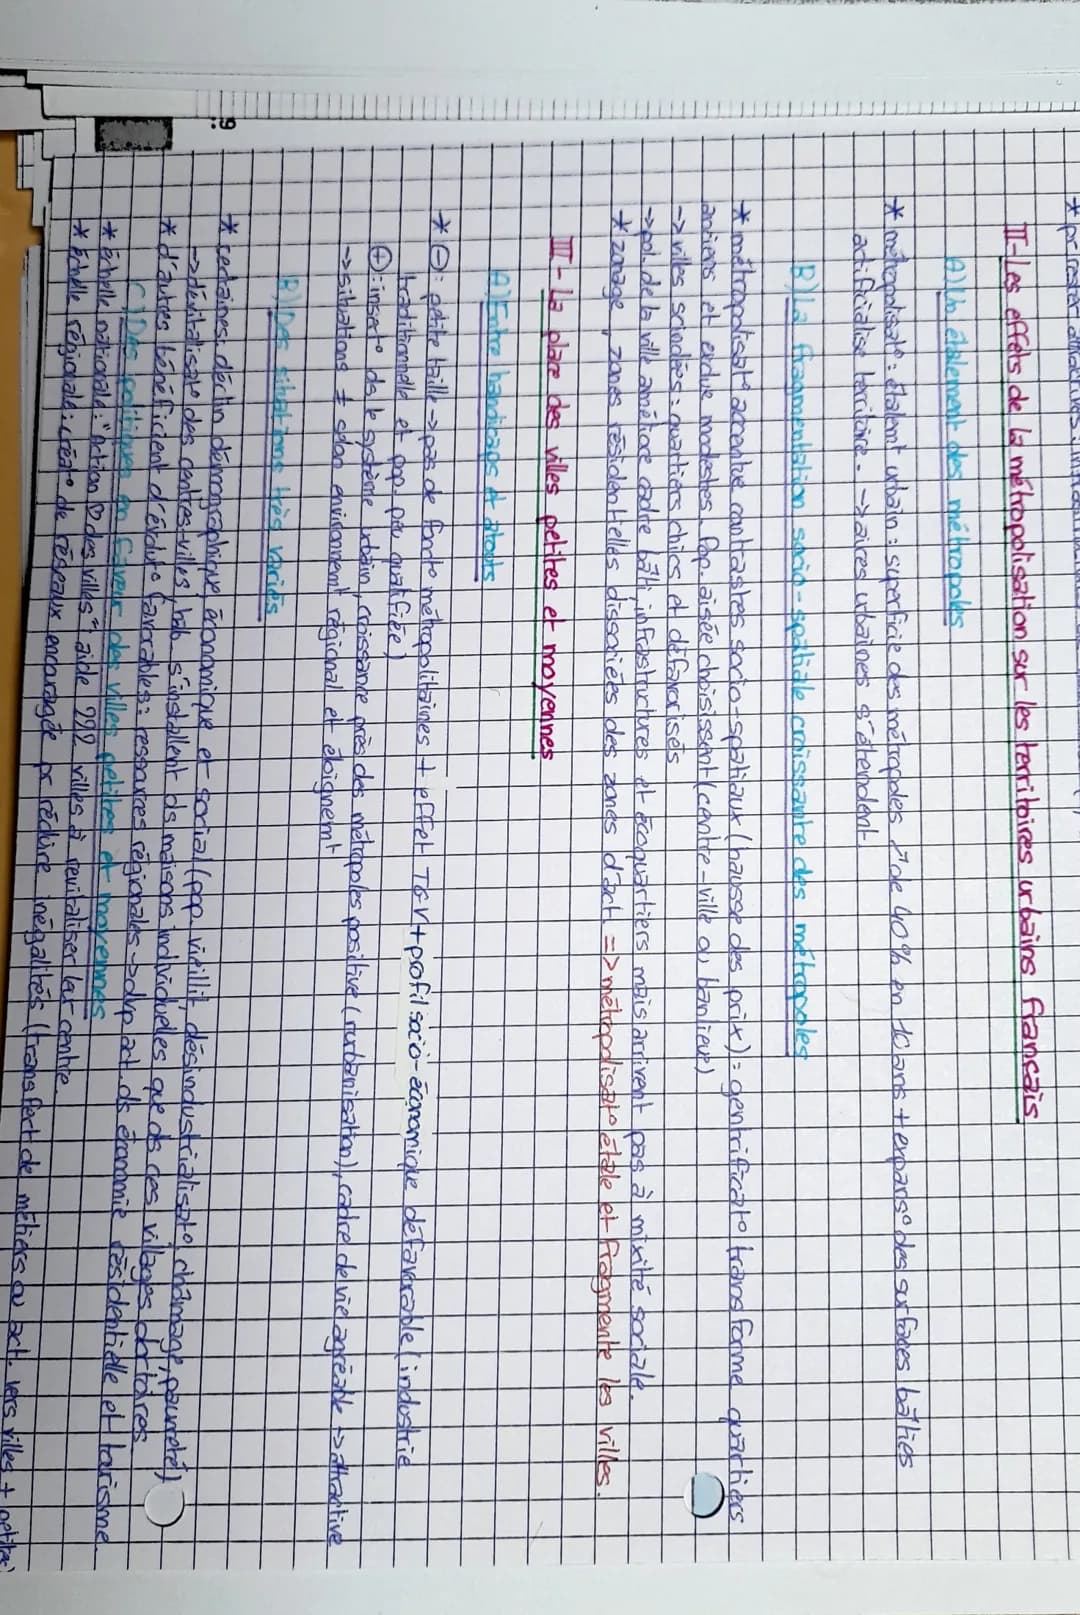 * pr rester attractives.
II-Les effets de la métropolisation sur les territoires urbains français
A) Un étalement des métropoles
* métropolisat° : étalemt urbain : superficie des métropoles ↗ de 40% en 10 ans + expans° des surfaces bâties
artificialise territoire. -> aires urbaines s'étendent.
B) La fragmentation socio-spatiale croissante des métropoles
* métropolisat° accentue contrastes socio-spatiaux (hausse des prix) = gentrificat° transforme quartiers
anciens et exclue modestes. Pop. aisée choisissent (centre-ville ou banlieue)
-> villes scindées : quartiers chics et défavorisés
-> pol. de la ville améliore cadre bâti, infrastructures et écoquartiers mais arrivent pas à mixité sociale.
* zonage, zones résidentielles dissociées des zones d'act. => métropolisat° étale et fragmente les villes.
III - La place des villes petites et moyennes
A) Entre handicaps et atouts
* ⊖ : petite taille -> pas de fonct° métropolitaines + effet TGV + profil socio-économique défavorable (industrie
traditionnelle et pop. peu qualifiée)
⊕ : insert° ds le système urbain, croissance près des métropoles positive (rurbanisation), cadre de vie agréable -> attractive
-> situations ≠ selon environnement régional et éloignemt
B) Des situations très variées
* certaines : déclin démographique, économique et social (pop. vieillit, désindustrialisat°, chômage, pauvreté)
-> dévitalisat° des centres-villes, hab. s'installent ds maisons individuelles que ds ces villages dortoires.
* d'autres bénéficient d'évolut° favorables : ressources régionales -> dvp act. ds économie résidentielle et tourisme.
C) Des politiques en faveur des villes petites et moyennes
* échelle nationale : "Action ♡ des villes" aide 222 villes à revitaliser leur centre.
* échelle régionale : créat° de réseaux encouragée pr réduire inégalités (transfert de métiers ou act. vers villes + petites)